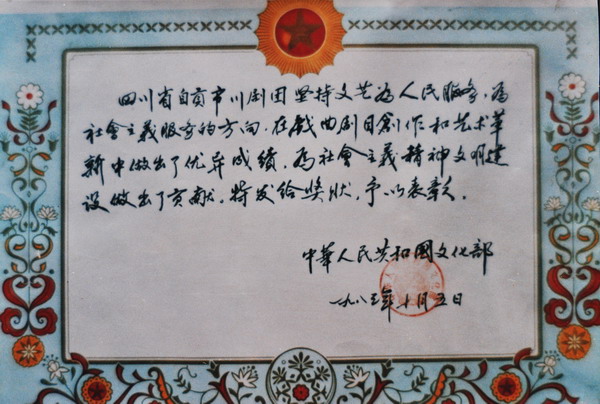 四川省自贡市川剧团坚持文艺为人民服务,为
社會主義服务的方向,在戲曲剧目創作和艺术革
新中做出了优异成績,為社會主義精神文明建
设做出了贡献。特发给奬狀,予以表彰。
中華人民共和國文化部
一九八五年十月五日